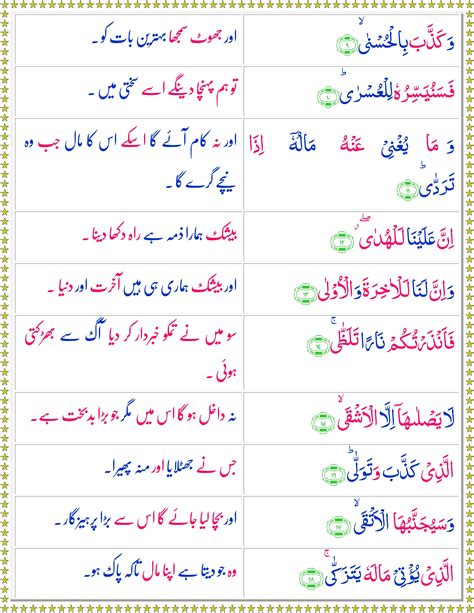 وَكَذَّبَ بِالْحُسْنٰىۙ ﴿۹﴾
اور جھوٹ سمجھا بہترین بات کو ۔
فَسَنُيَسِّرُهٗ لِلْعُسْرٰىؕ ﴿۱۰﴾
تو ہم پہنچا دینگے اسے سختی میں ۔
وَ مَا يُغْنِىْ عَنْهُ مَالُهٗۤ اِذَا
تَرَدّٰىؕ ﴿۱۱﴾
اور نہ کام آئے گا اسکے اس کا مال جب وہ
نیچے گرے گا ۔
اِنَّ عَلَيْنَا لَلْهُدٰىۖ ﴿۱۲﴾
بیشک ہمارا ذمہ ہے راہ دکھا دینا ۔
وَاِنَّ لَنَا لَلْاٰخِرَةَ وَالْاُوْلٰى ﴿۱۳﴾
اور بیشک ہماری ہی ہیں آخرت اور دنیا ۔
فَاَنْذَرْتُكُمْ نَارًا تَلَظّٰىۚ ﴿۱۴﴾
سو میں نے تمکو خبردار کر دیا آگ سے بھڑکتی
ہوئی ۔
لَا يَصْلٰىهَاۤ اِلَّا الْاَشْقَىۙ ﴿۱۵﴾
نہ داخل ہو گا اس میں مگر جو بڑا بدبخت ہے ۔
الَّذِىْ كَذَّبَ وَتَوَلّٰىؕ ﴿۱۶﴾
جس نے جھٹلایا اور منہ پھیرا ۔
وَسَيُجَنَّبُهَا الْاَتْقَىۙ ﴿۱۷﴾
اور بچا لیا جائے گا اس سے بڑا پرہیزگار ۔
الَّذِىْ يُؤْتِىْ مَالَهٗ يَتَزَكّٰىۚ ﴿۱۸﴾
وہ جو دیتا ہے اپنا مال تاکہ پاک ہو ۔